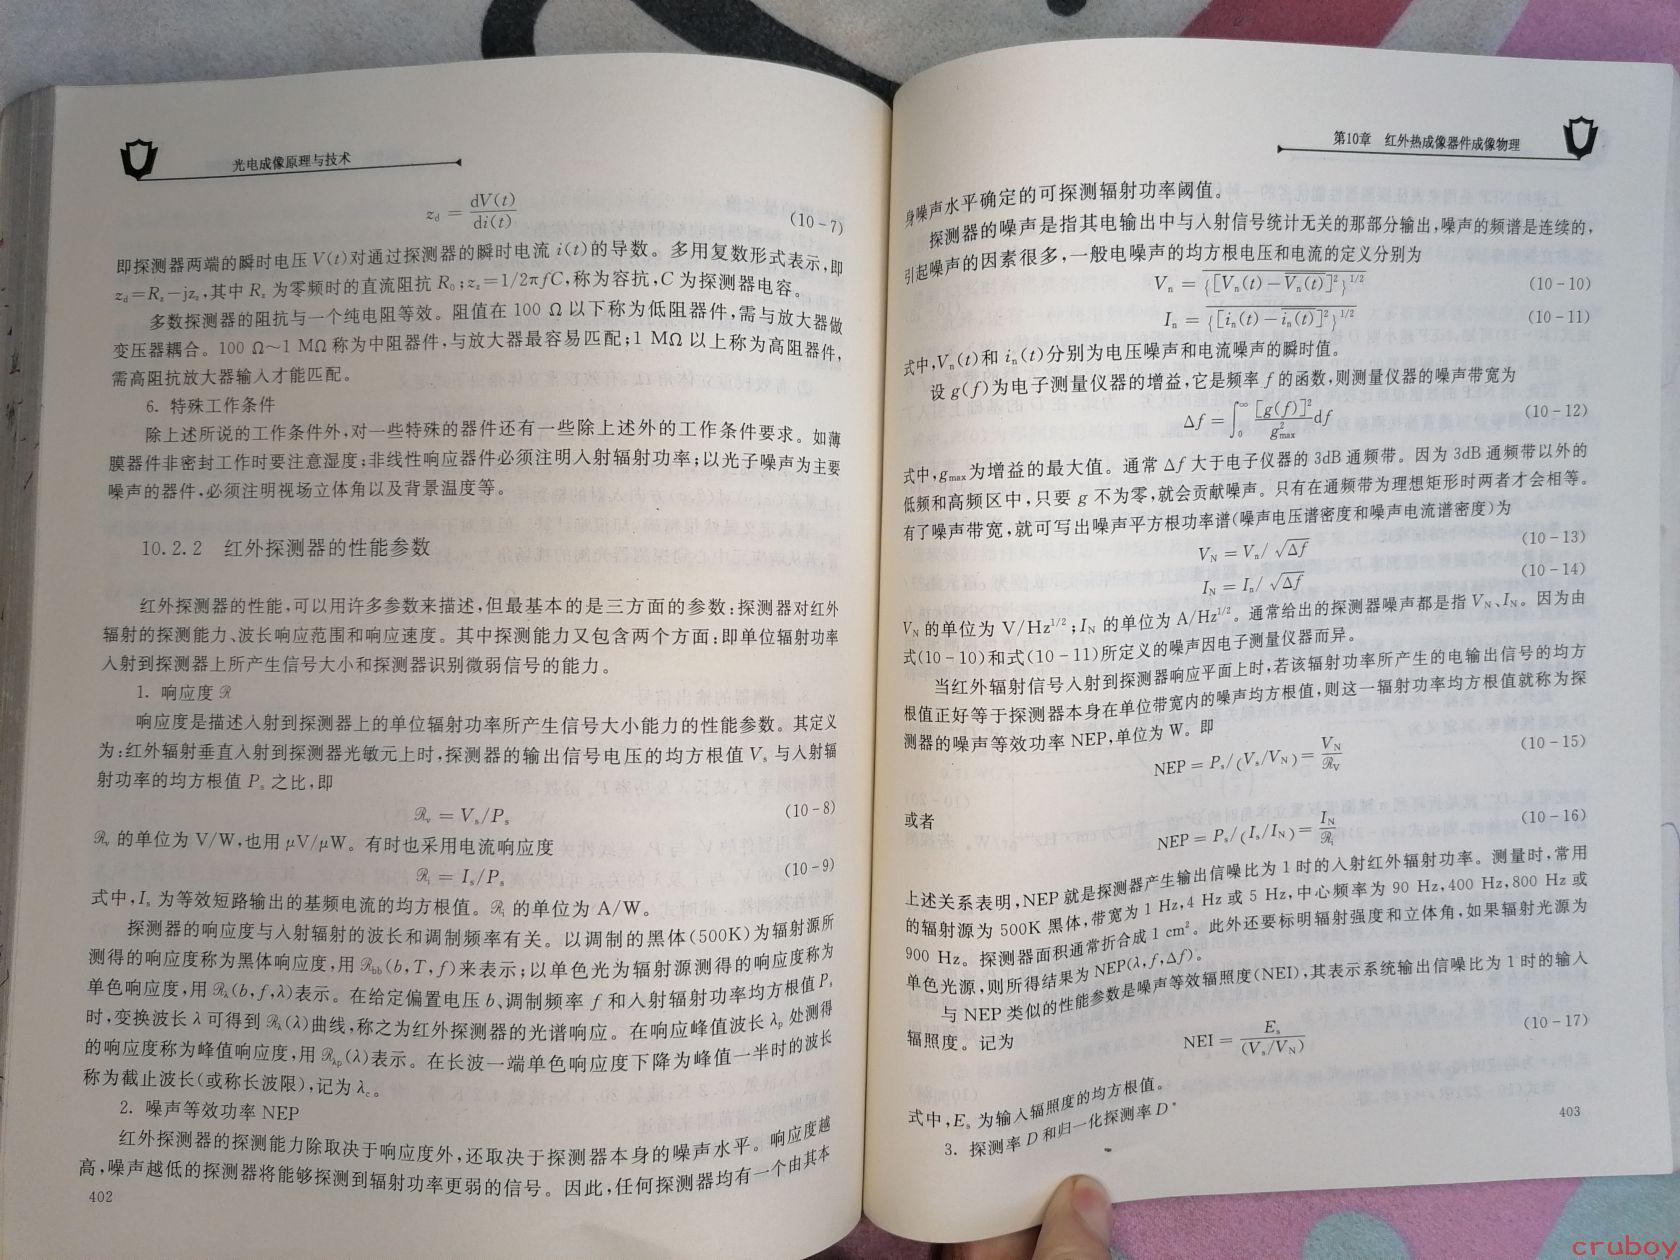 光电成像原理与技术
z_d = dV(t)/di(t) (10-7)
即探测器两端的瞬时电压 V(t)对通过探测器的瞬时电流 i(t)的导数。多用复数形式表示,即
z_d=R_z-jz_z,其中 R_z 为零频时的直流阻抗 R_0;z_z=1/2πfC,称为容抗,C 为探测器电容。
多数探测器的阻抗与一个纯电阻等效。阻值在 100 Ω 以下称为低阻器件,需与放大器做
变压器耦合。100 Ω~1 MΩ 称为中阻器件,与放大器最容易匹配;1 MΩ 以上称为高阻器件,
需高阻抗放大器输入才能匹配。
6. 特殊工作条件
除上述所说的工作条件外,对一些特殊的器件还有一些除上述外的工作条件要求。如薄
膜器件非密封工作时要注意湿度;非线性响应器件必须注明入射辐射功率;以光子噪声为主要
噪声的器件,必须注明视场立体角以及背景温度等。
10.2.2 红外探测器的性能参数
红外探测器的性能,可以用许多参数来描述,但最基本的是三方面的参数:探测器对红外
辐射的探测能力、波长响应范围和响应速度。其中探测能力又包含两个方面:即单位辐射功率
入射到探测器上所产生信号大小和探测器识别微弱信号的能力。
1. 响应度 ℛ
响应度是描述入射到探测器上的单位辐射功率所产生信号大小能力的性能参数。其定义
为:红外辐射垂直入射到探测器光敏元上时,探测器的输出信号电压的均方根值 V_s 与入射辐
射功率的均方根值 P_s 之比,即
ℛ_v = V_s/P_s (10-8)
ℛ_v 的单位为 V/W,也用 μV/μW。有时也采用电流响应度
ℛ_i = I_s/P_s (10-9)
式中,I_s 为等效短路输出的基频电流的均方根值。ℛ_i 的单位为 A/W。
探测器的响应度与入射辐射的波长和调制频率有关。以调制的黑体(500K)为辐射源所
测得的响应度称为黑体响应度,用 ℛ_bb(b,T,f)来表示;以单色光为辐射源测得的响应度称为
单色响应度,用 ℛ_λ(b,f,λ)表示。在给定偏置电压 b、调制频率 f 和入射辐射功率均方根值 P_s
时,变换波长 λ 可得到 ℛ_λ(λ)曲线,称之为红外探测器的光谱响应。在响应峰值波长 λ_p 处测得
的响应度称为峰值响应度,用 ℛ_λp(λ)表示。在长波一端单色响应度下降为峰值一半时的波长
称为截止波长(或称长波限),记为 λ_c。
2. 噪声等效功率 NEP
红外探测器的探测能力除取决于响应度外,还取决于探测器本身的噪声水平。响应度越
高,噪声越低的探测器将能够探测到辐射功率更弱的信号。因此,任何探测器均有一个由其本
402
第10章 红外热成像器件成像物理
身噪声水平确定的可探测辐射功率阈值。
探测器的噪声是指其电输出中与入射信号统计无关的那部分输出,噪声的频谱是连续的,
引起噪声的因素很多,一般电噪声的均方根电压和电流的定义分别为
V_n = {[V_n(t)-V_n(t)]²}^1/2 (10-10)
I_n = {[i_n(t)-i_n(t)]²}^1/2 (10-11)
式中,V_n(t)和 i_n(t)分别为电压噪声和电流噪声的瞬时值。
设 g(f)为电子测量仪器的增益,它是频率 f 的函数,则测量仪器的噪声带宽为
Δf = ∫_0^∞ [g(f)]²/g²_max df (10-12)
式中,g_max为增益的最大值。通常 Δf 大于电子仪器的 3dB 通频带。因为 3dB 通频带以外的
低频和高频区中,只要 g 不为零,就会贡献噪声。只有在通频带为理想矩形时两者才会相等。
有了噪声带宽,就可写出噪声平方根功率谱(噪声电压谱密度和噪声电流谱密度)为
V_N = V_n/√Δf (10-13)
I_N = I_n/√Δf (10-14)
V_N 的单位为 V/Hz^1/2;I_N 的单位为 A/Hz^1/2。通常给出的探测器噪声都是指 V_N、I_N。因为由
式(10-10)和式(10-11)所定义的噪声因电子测量仪器而异。
当红外辐射信号入射到探测器响应平面上时,若该辐射功率所产生的电输出信号的均方
根值正好等于探测器本身在单位带宽内的噪声均方根值,则这一辐射功率均方根值就称为探
测器的噪声等效功率 NEP,单位为 W。即
NEP = P_s/(V_s/V_N) = V_N/ℛ_V (10-15)
或者
NEP = P_s/(I_s/I_N) = I_N/ℛ_i (10-16)
上述关系表明,NEP 就是探测器产生输出信噪比为 1 时的入射红外辐射功率。测量时,常用
的辐射源为 500K 黑体,带宽为 1 Hz,4 Hz 或 5 Hz,中心频率为 90 Hz,400 Hz,800 Hz 或
900 Hz。探测器面积通常折合成 1 cm²。此外还要标明辐射强度和立体角,如果辐射光源为
单色光源,则所得结果为 NEP(λ,f,Δf)。
与 NEP 类似的性能参数是噪声等效辐照度(NEI),其表示系统输出信噪比为 1 时的输入
辐照度。记为
NEI = E_s/(V_s/V_N) (10-17)
式中,E_s 为输入辐照度的均方根值。
3. 探测率 D 和归一化探测率 D*
403
cruboy